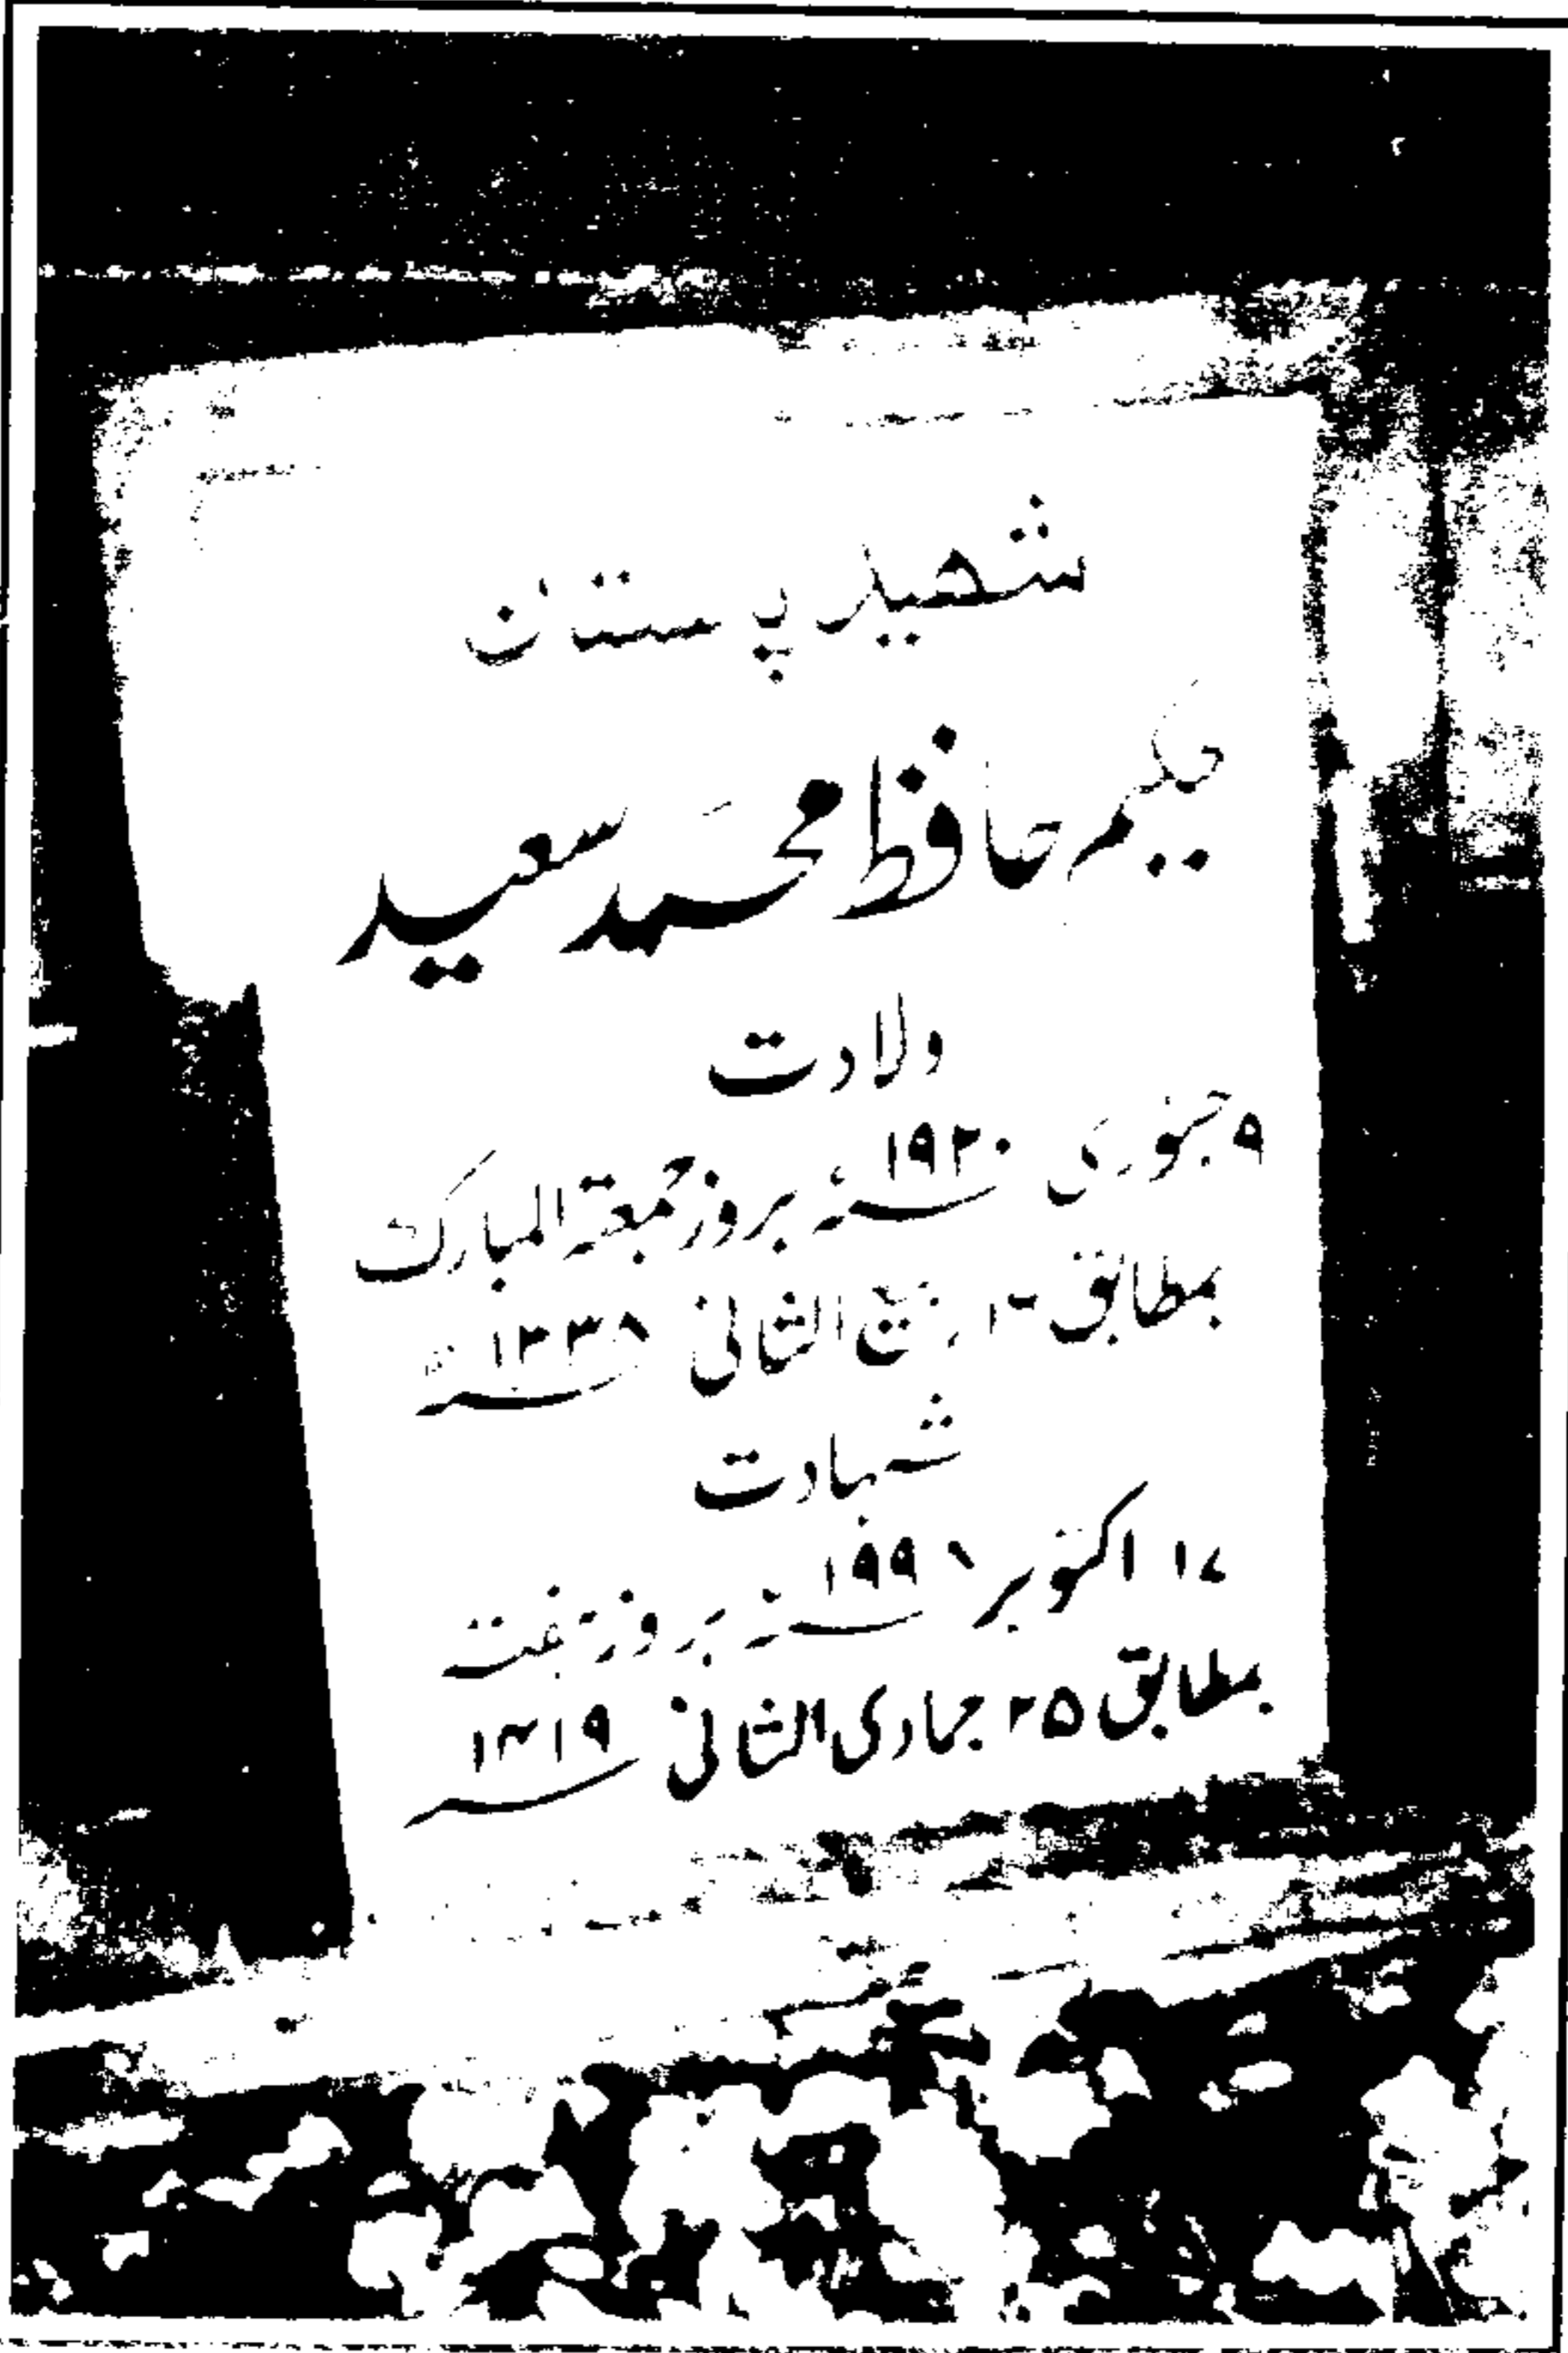 شهید پاکستان
حکیم حافظ محمد سعید
ولادت
۹ جنوری ۱۹۲۰ء بروز جمعۃ المبارک
بمطابق ربیع الثانی ۱۳۳۸ھ
شہادت
۱۷ اکتوبر ۱۹۹۸ء بروز ہفتہ
بمطابق ۲۵ جمادی الثانی ۱۴۱۹ھ